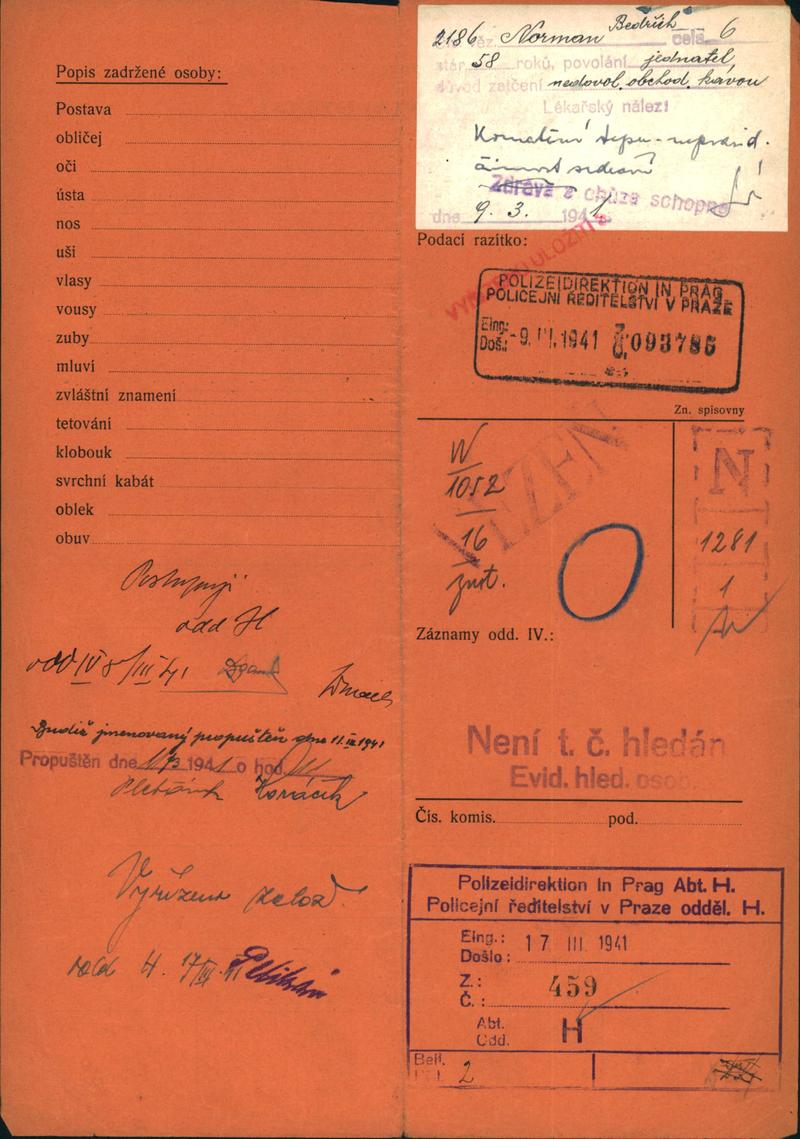 Popis zadržené osoby:
Postava
obličej
oči
ústa
nos
uši
vlasy
vousy
zuby
mluví
zvláštní znamení
tetování
klobouk
svrchní kabát
oblek
obuv
Postupuji
odd H
odd IV 8/III 41
jmenovaný propuštěn dne 11.III.1941
Propuštěn dne 11/3 1941 o hod. 11
Horáček
Vyřízeno založ.
odd 4. 17/III 41
2186 věz. Norman Bedřich cela 6
stár 58 roků, povolání jednatel
důvod zatčení nedovol. obchod. kávou
Lékařský nález:
Kornatění tepen - nepravid.
činnost srdeční
Zdráva a chůze schopna
dne 9. 3. 1941
Podací razítko:
POLIZEIDIREKTION IN PRAG
POLICEJNÍ ŘEDITELSTVÍ V PRAZE
Eing.:
Doš.: -9. III. 1941 Z. Č. 093786
Zn. spisovny
VĚZEŇ
N
1052
16
zust.
N
1281
1
Záznamy odd. IV.:
Není t. č. hledán
Evid. hled. osob.
Čís. komis. pod.
Polizeidirektion in Prag Abt. H.
Policejní ředitelství v Praze odděl. H.
Eing.: 17 III. 1941
Došlo:
Z.: 459
Č.:
Abt. H
Odd.
Beil. 2